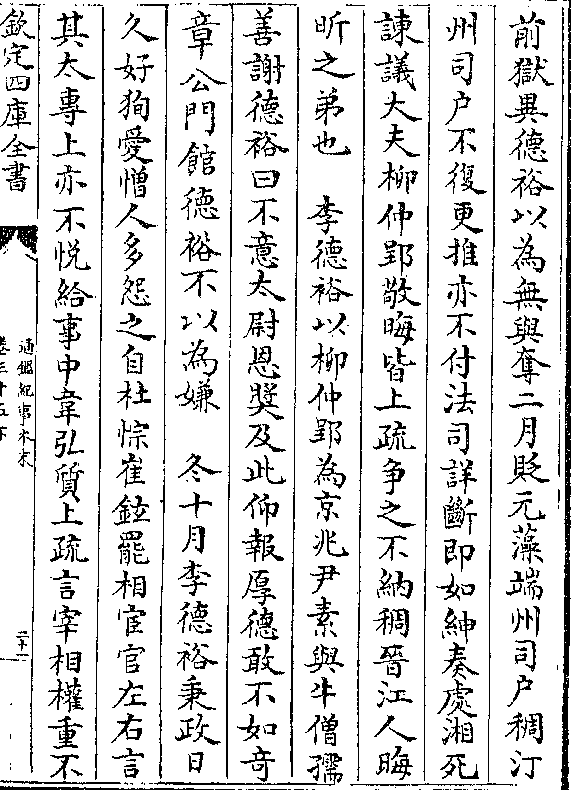 前獄異德裕以為無與奪二月貶元藻端州司户稠汀
州司户不復更推亦不付法司詳斷即如紳奏處湘死
諫議大夫柳仲郢敬晦皆上疏争之不納稠晉江人晦
昕之弟也　李德裕以柳仲郢為京兆尹素與牛僧孺
善謝德裕曰不意太尉恩奬及此仰報厚德敢不如竒
章公門館德裕不以為嫌　冬十月李德裕秉政日
久好狥愛憎人多怨之自杜悰崔鉉罷相宦官左右言
其太專上亦不悦給事中韋弘質上疏言宰相權重不
欽定四庫全書
通鑑紀事本末
卷三十五下
二十一